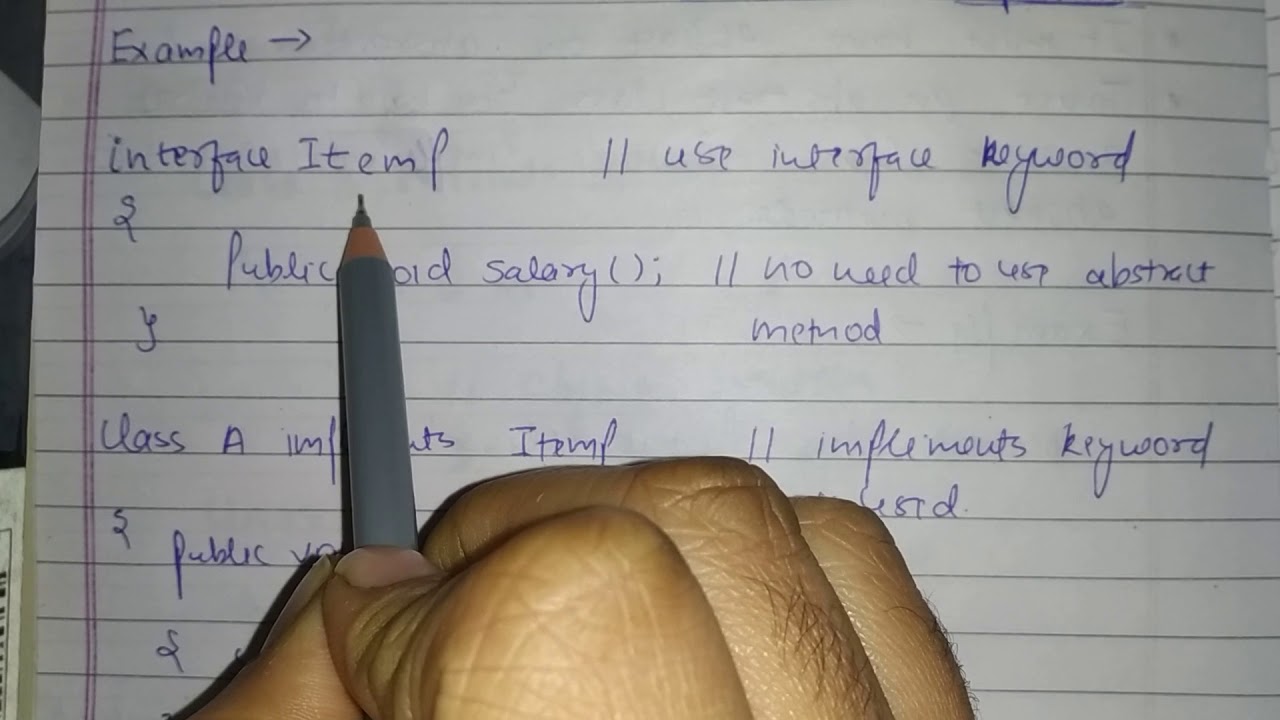 Example →
interface Itemp // use interface keyword
{
Public salary(); // no need to use abstract
} method
Class A Itemp // implements keyword
{
Public
{